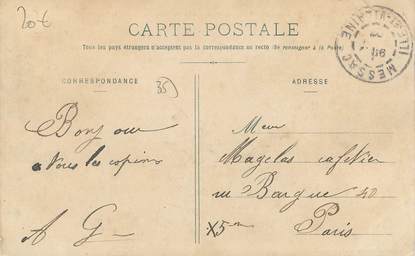 20€
CARTE POSTALE
Tous les pays étrangers n'acceptent pas la correspondance au recto (Se renseigner à la Poste)
MESSAC
ILLE-ET-VILAINE
CORRESPONDANCE
35
ADRESSE
Bonjour
a vous les copins
A G
Magelas cafetier
rue Bargue 40
X5
Paris